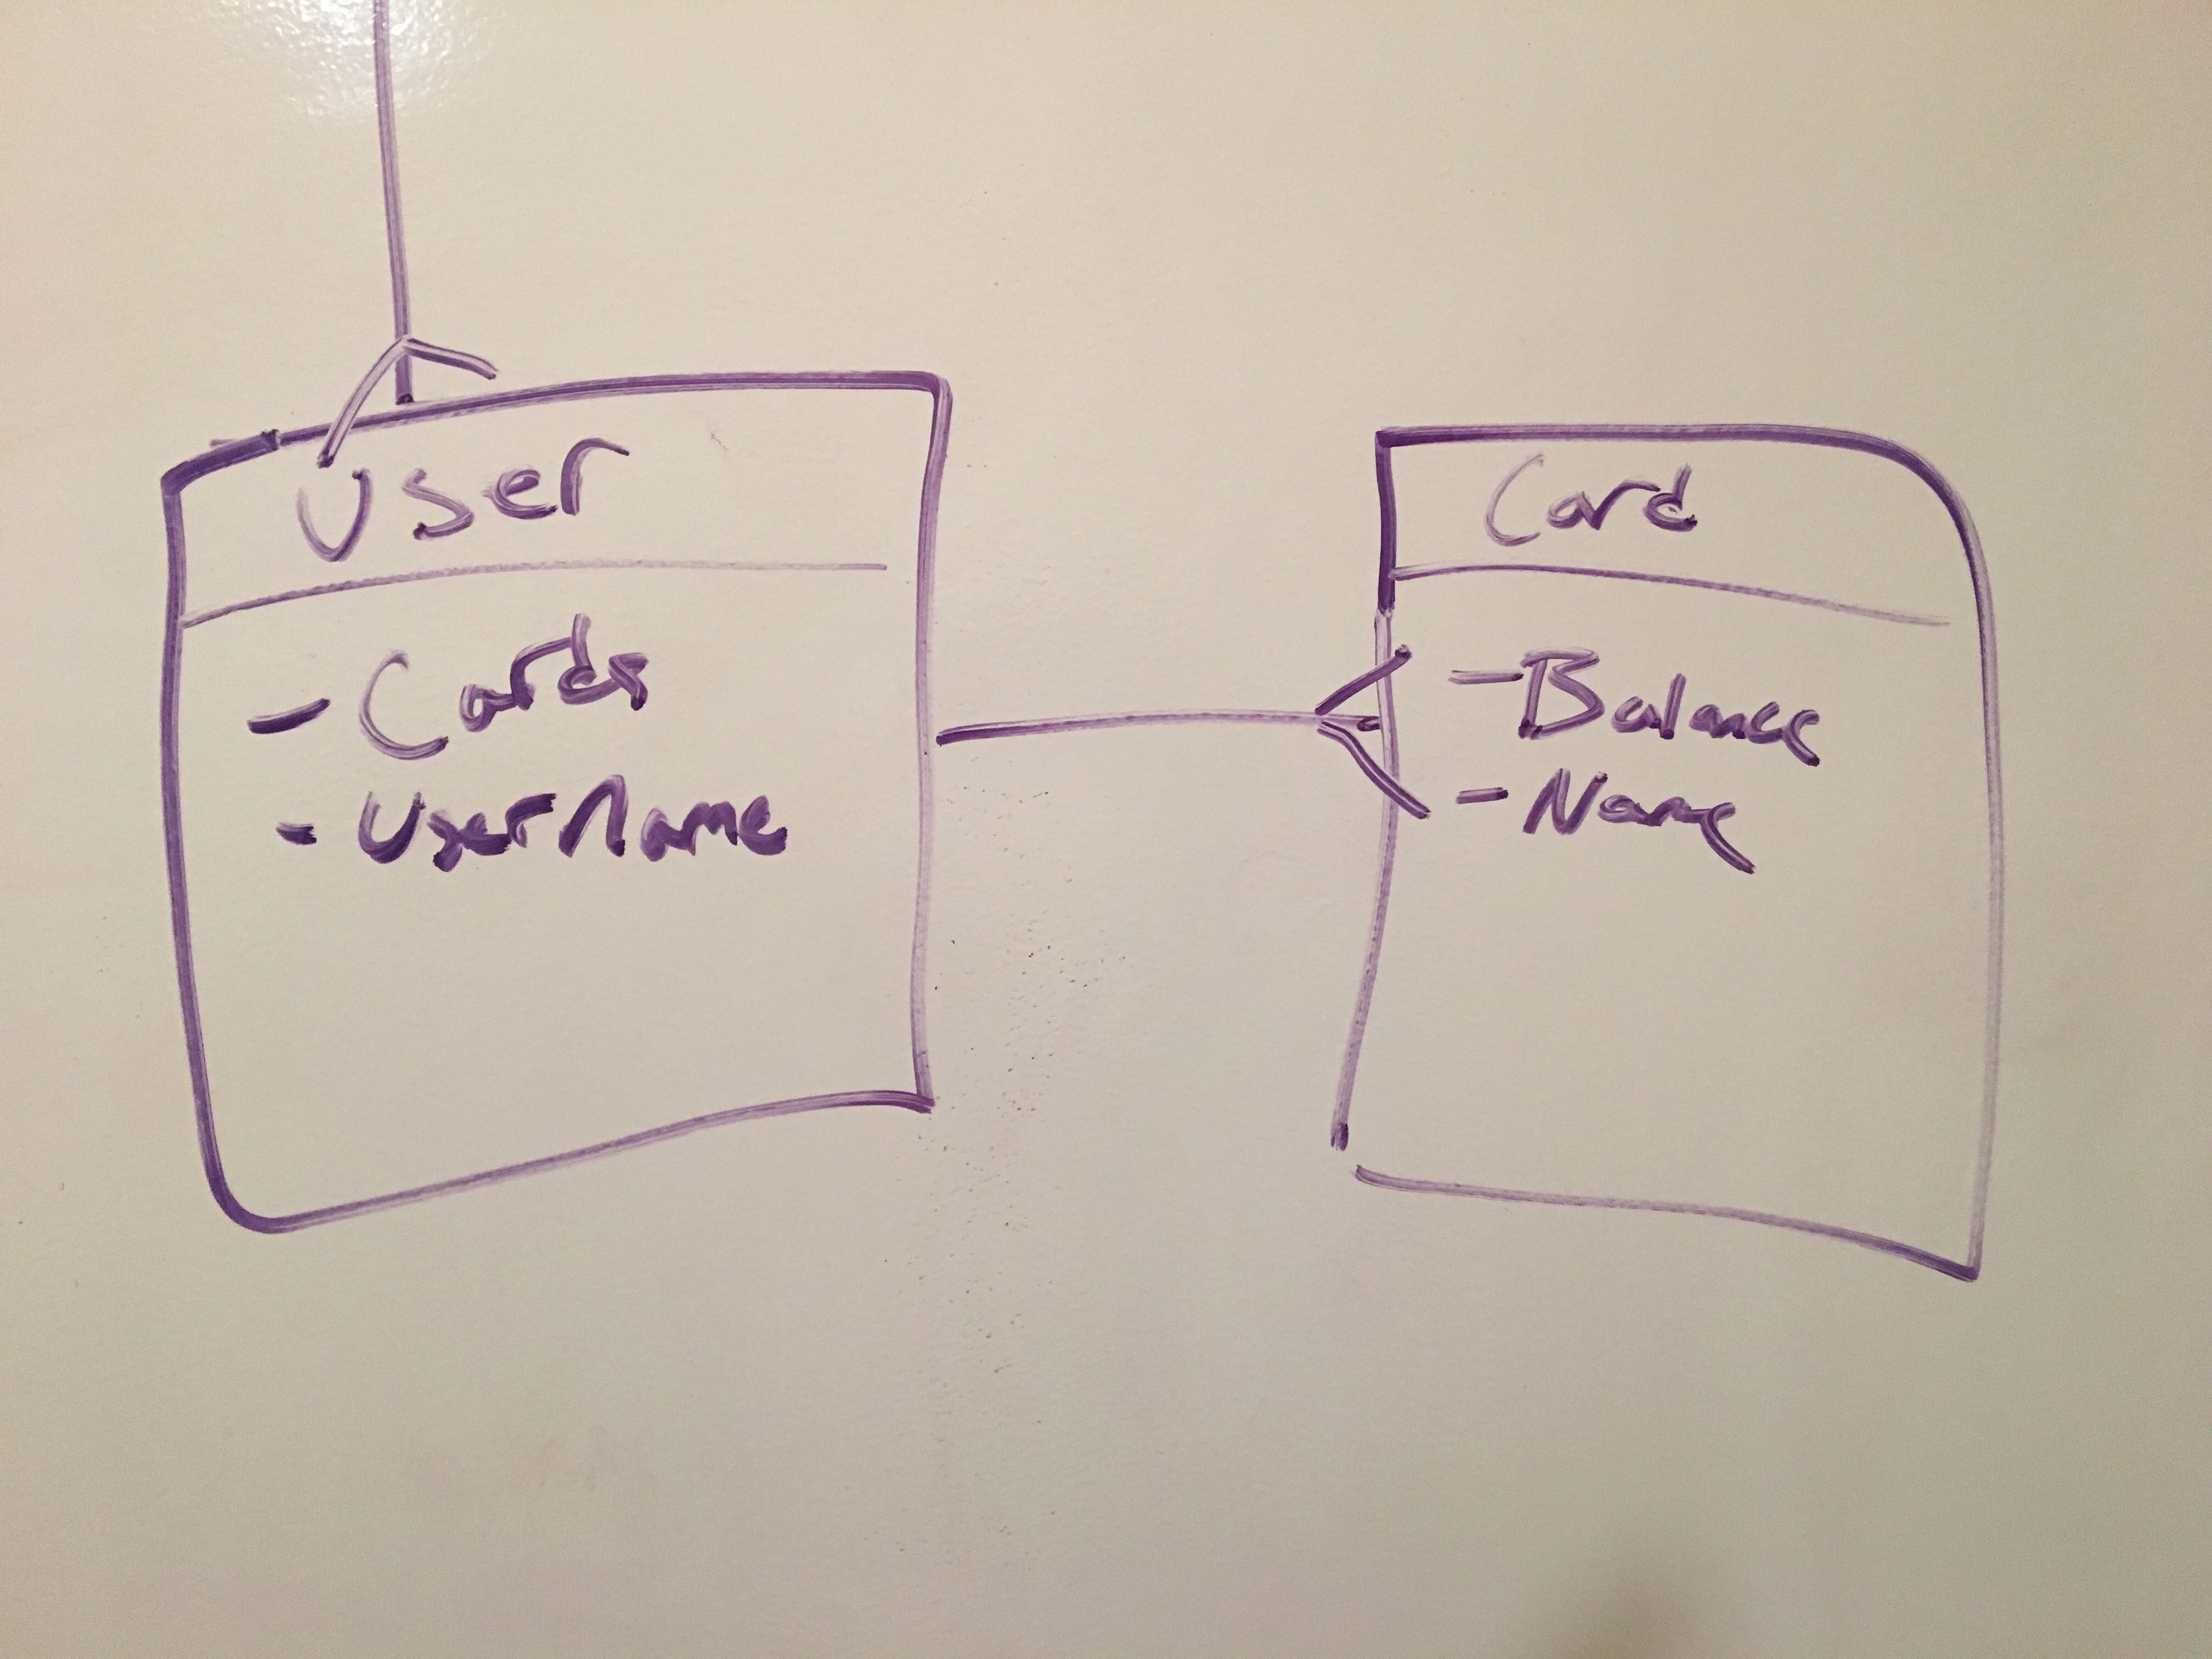 User
- Cards
- UserName
Card
- Balance
- Name